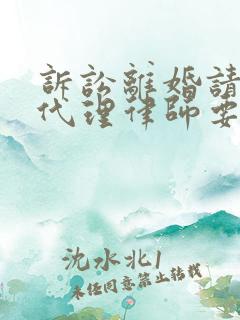 訴訟離婚請
代理律師要
沈水北1
未经同意禁止转载